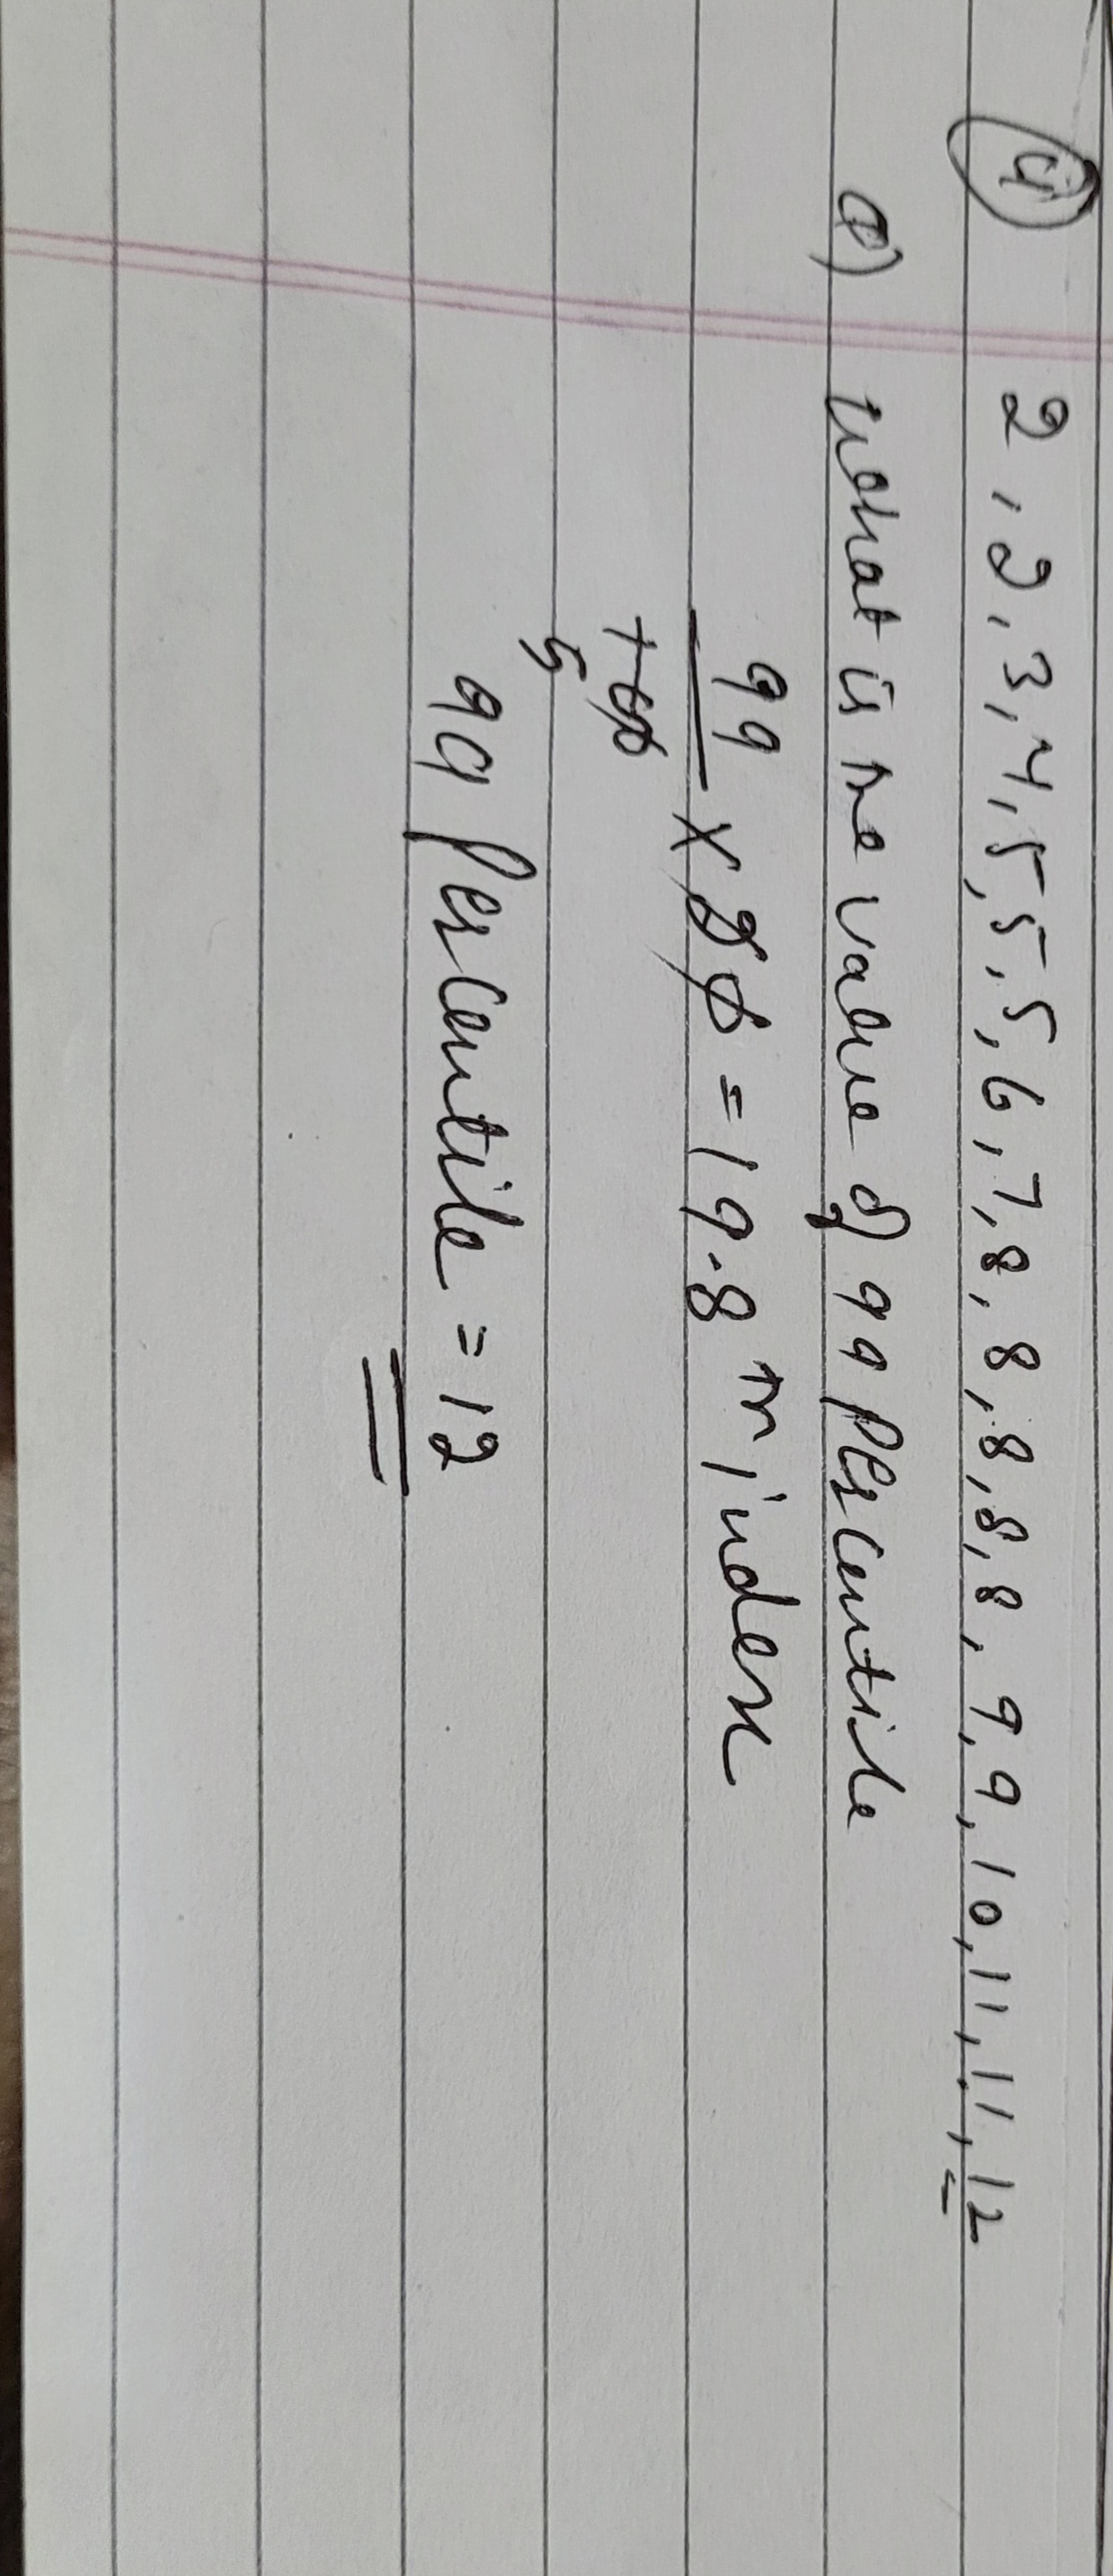 4) 2, 2, 3, 4, 5, 5, 5, 6, 7, 8, 8, 8, 8, 8, 9, 9, 10, 11, 11, 12
Q) What is the value of 99 percentile
99 × 20 = 19.8 th index
100
5
99 percentile = 12